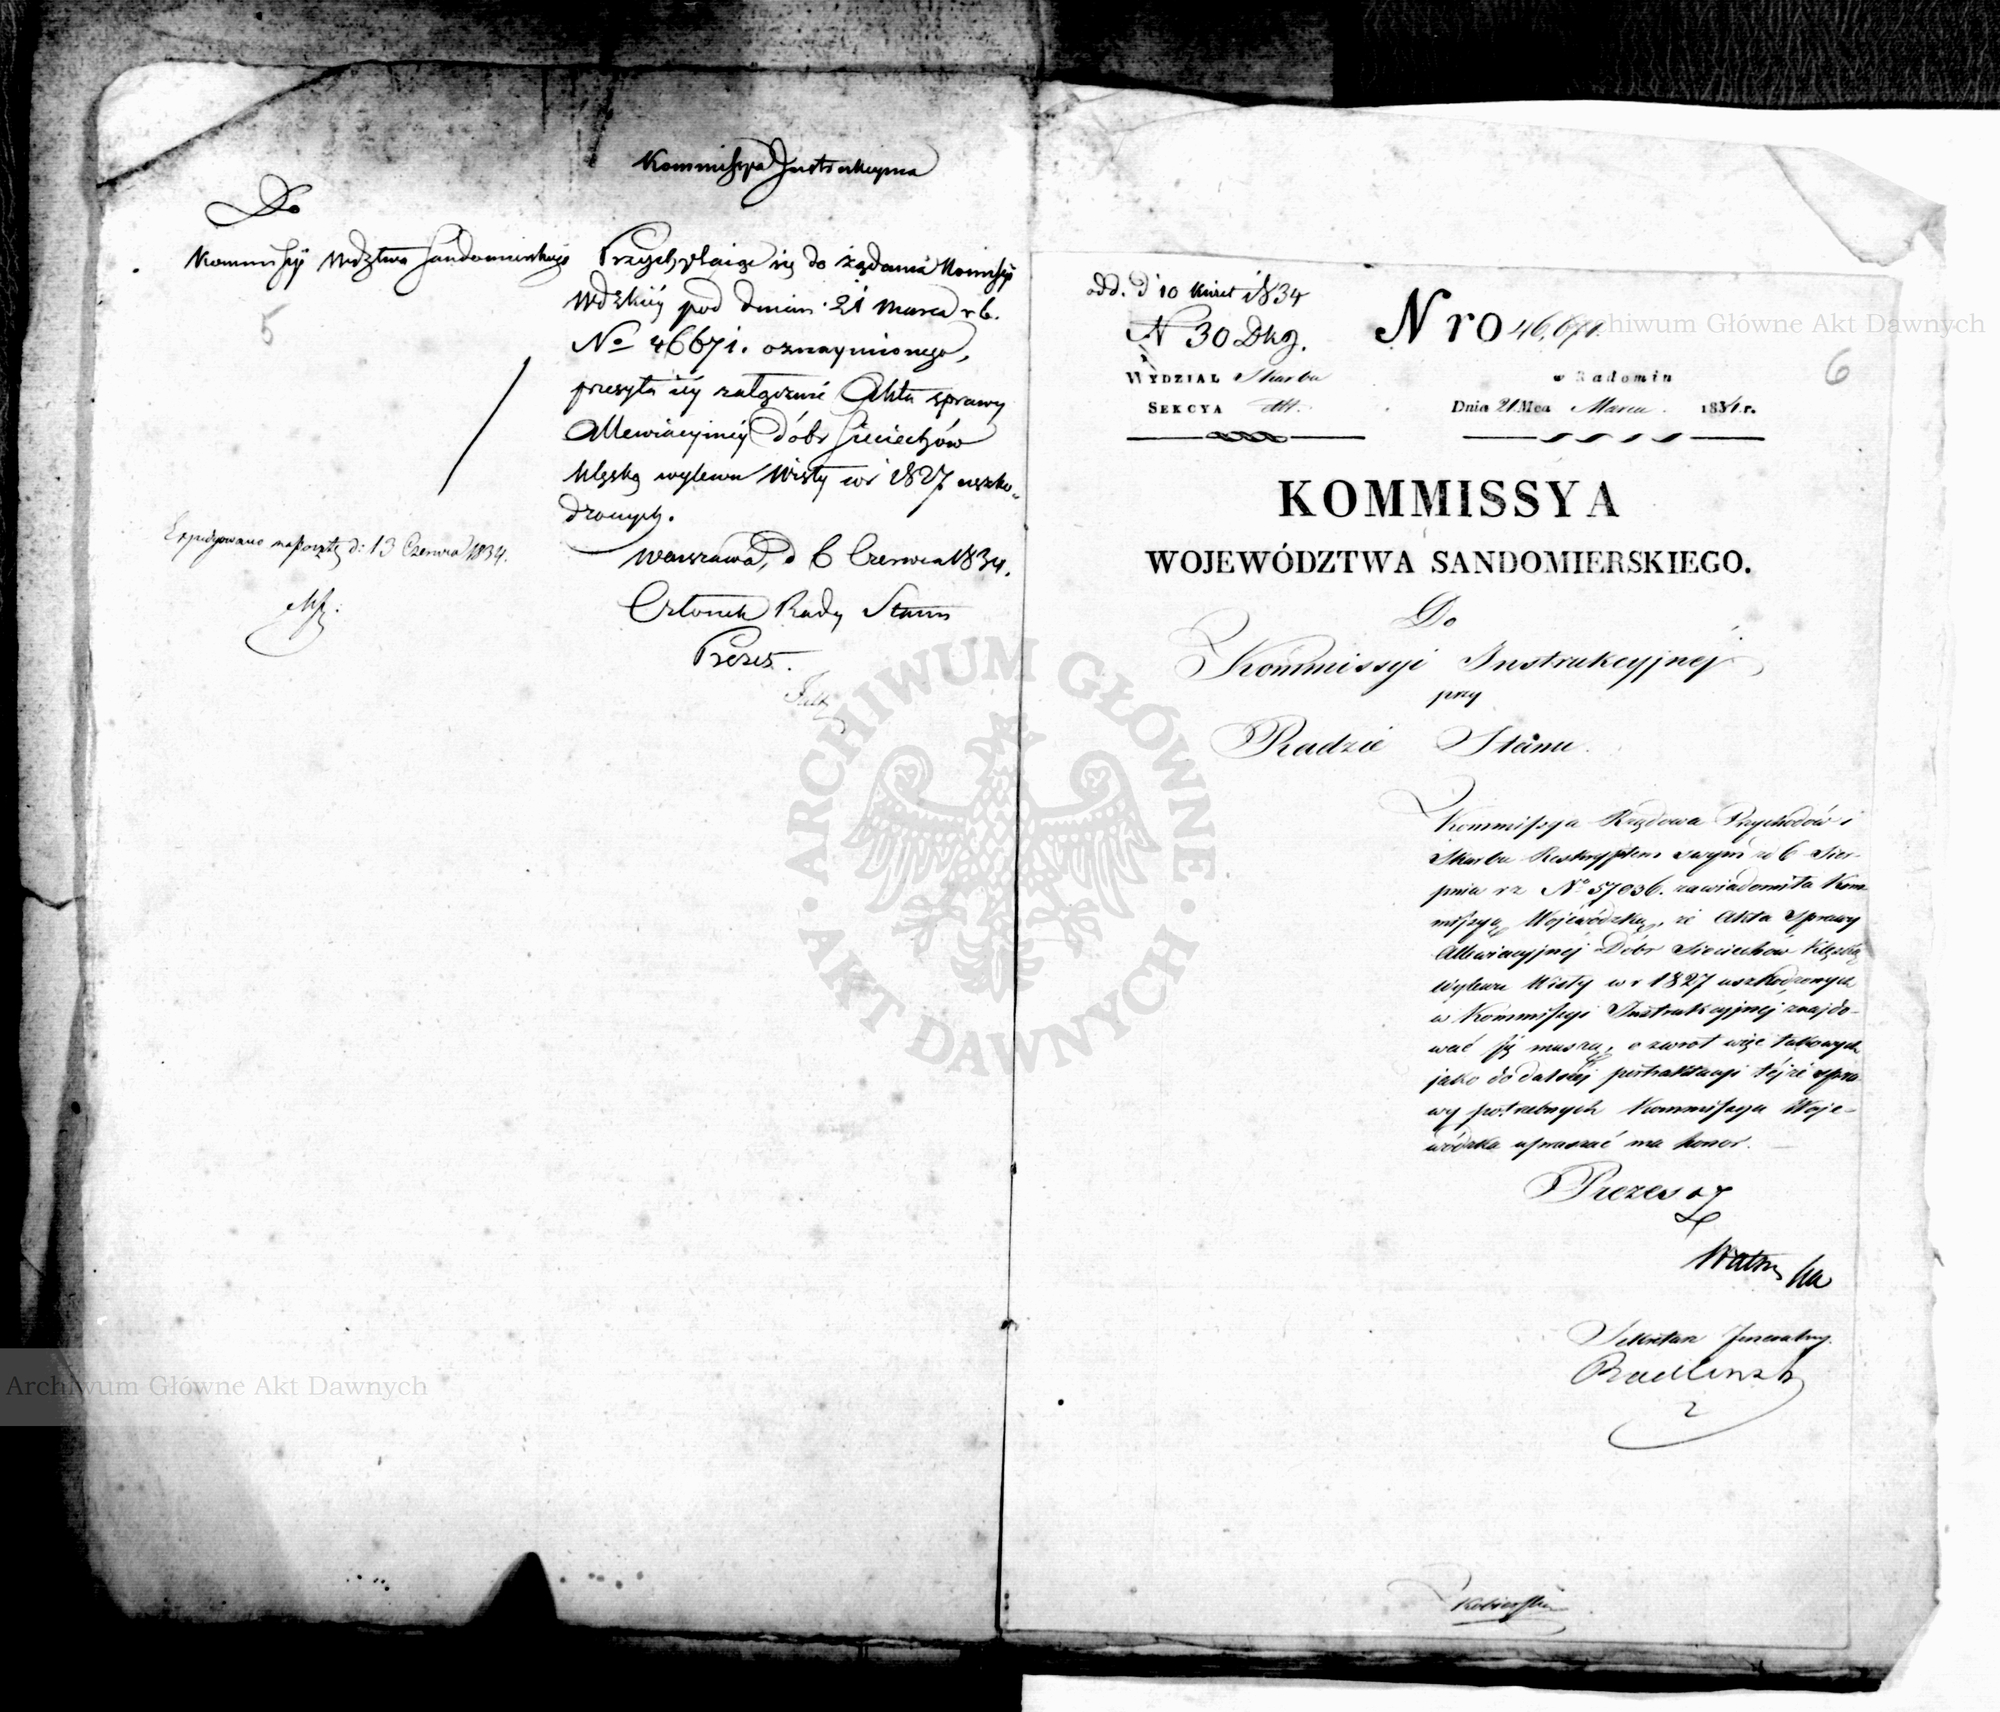 Kommissya Instrukcyina
Do
Kommissyi Wdztwa Sandomierskiego
5
Przychylaiąc się do żądania Kommissyi
Wdzkiéy pod dniem 21 Marca r b.
No 46671. oznaymionego,
przesyła iéy załączone Akta sprawy
Allewiacyjnéy Dóbr Sieciechów
klęską wylewu Wisły w r 1827 uszko-
dzonych.
Warszawa, d 6 Czerwca 1834.
Członek Rady Stanu
Prezes.
Expedyowano na pocztę d: 13 Czerwca 1834.
odd. d 10 1834
N 30 Dkg.
WYDZIAŁ Skarbu
SEKCYA
Nro 46,671.
6
w Radomiu
Dnia 21 Mca Marca 1834 r.
KOMMISSYA
WOJEWÓDZTWA SANDOMIERSKIEGO.
Do
Kommissyi Instrukcyjnéj
przy
Radzie Stanu.
Kommissya Rządowa Przychodów i
Skarbu Reskryptem swym z d 6 Sier-
pnia r z No 57036. zawiadomiła Kom-
missyą Wojewódzką, że Akta Sprawy
Allewiacyjnéj Dóbr Sieciechow klęską
wylewu Wisły w r 1827 uszkodzonych
w Kommissyi Instrukcyjnéj znajdo-
wać się muszą, o zwrot więc takowych
jako do dalszéj pertraktacyi téjże spra-
wy potrzebnych Kommissya Woje-
wódzka upraszać ma honor.
Prezes
Sekretarz Jeneralny.
Radliński
Archiwum Główne Akt Dawnych
Archiwum Główne Akt Dawnych
ARCHIWUM GŁÓWNE
AKT DAWNYCH